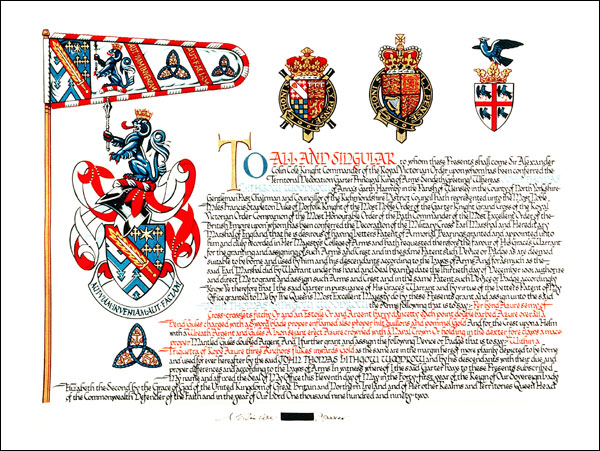 AUT VIAM INVENIAM AUT FACIAM
TO ALL AND SINGULAR to whom these Presents shall come Sir Alexander
Colin Cole Knight Commander of the Royal Victorian Order upon whom has been conferred the
Territorial Decoration Garter Principal King of Arms Sends Greeting Whereas
of Anna's Garth Harmby in the Parish of in the County of North Yorkshire
Gentleman Past Chairman and Councillor of the Richmondshire District Council hath represented unto the Most Noble
Miles Francis Stapleton Duke of Norfolk Knight of the Most Noble Order of the Garter Knight Grand Cross of the Royal
Victorian Order Companion of the Most Honourable Order of the Bath Commander of the Most Excellent Order of the
British Empire upon whom has been conferred the Decoration of the Military Cross Earl Marshal and Hereditary
Marshal of England that he is desirous of having Letters Patent of Armorial Bearings granted and appointed unto
him and duly recorded in Her Majesty's College of Arms and hath requested therefore the favour of His Grace's Warrant
for the granting and assigning of such Arms and Crest and in the same Patent such Device or Badge as are deemed
suitable to be borne and used by him and his descendants according to the Laws of Arms And forasmuch as the
said Earl Marshal did by Warrant under his hand and Seal bearing date the thirtieth day of December authorize
and direct Me to grant and assign such Arms and Crest and in the same Patent such Device or Badge accordingly
Know Ye therefore that I the said Garter in pursuance of His Grace's Warrant and by virtue of the Letters Patent of My
Office granted to Me by The Queen's Most Excellent Majesty do by these Presents grant and assign unto the said
the Arms following that is to say:- Per bend Azure semy of
Cross-crosslets fitchy Or and an Estoile Or and Argent barry dancetty each point double barbed Azure over all a
Bend Gules charged with a Sword blade proper enflamed also proper hilt quillons and pommel Gold And for the Crest upon a Helm
with a Wreath Argent and Gules A Lion sejant erect Azure crowned with a Naval Crown Or holding in the dexter fore claws a mace
proper Mantled Gules doubled Argent And I further grant and assign the following Device or Badge that is to say:- Within a
Triquetra of Rope Azure three Anchors flukes inwards Gold as the same are in the margin hereof more plainly depicted to be borne
and used for ever hereafter by the said JOHN THOMAS and by his descendants with their due and
proper differences and according to the Laws of Arms In witness whereof I the said Garter have to these Presents subscribed
My name and affixed the Seal of My Office this Eleventh day of May in the Forty-first year of the Reign of Our Sovereign Lady
Elizabeth the Second by the Grace of God of the United Kingdom of Great Britain and Northern Ireland and of Her other Realms and Territories Queen Head
of the Commonwealth Defender of the Faith and in the year of Our Lord One thousand nine hundred and ninety-two.